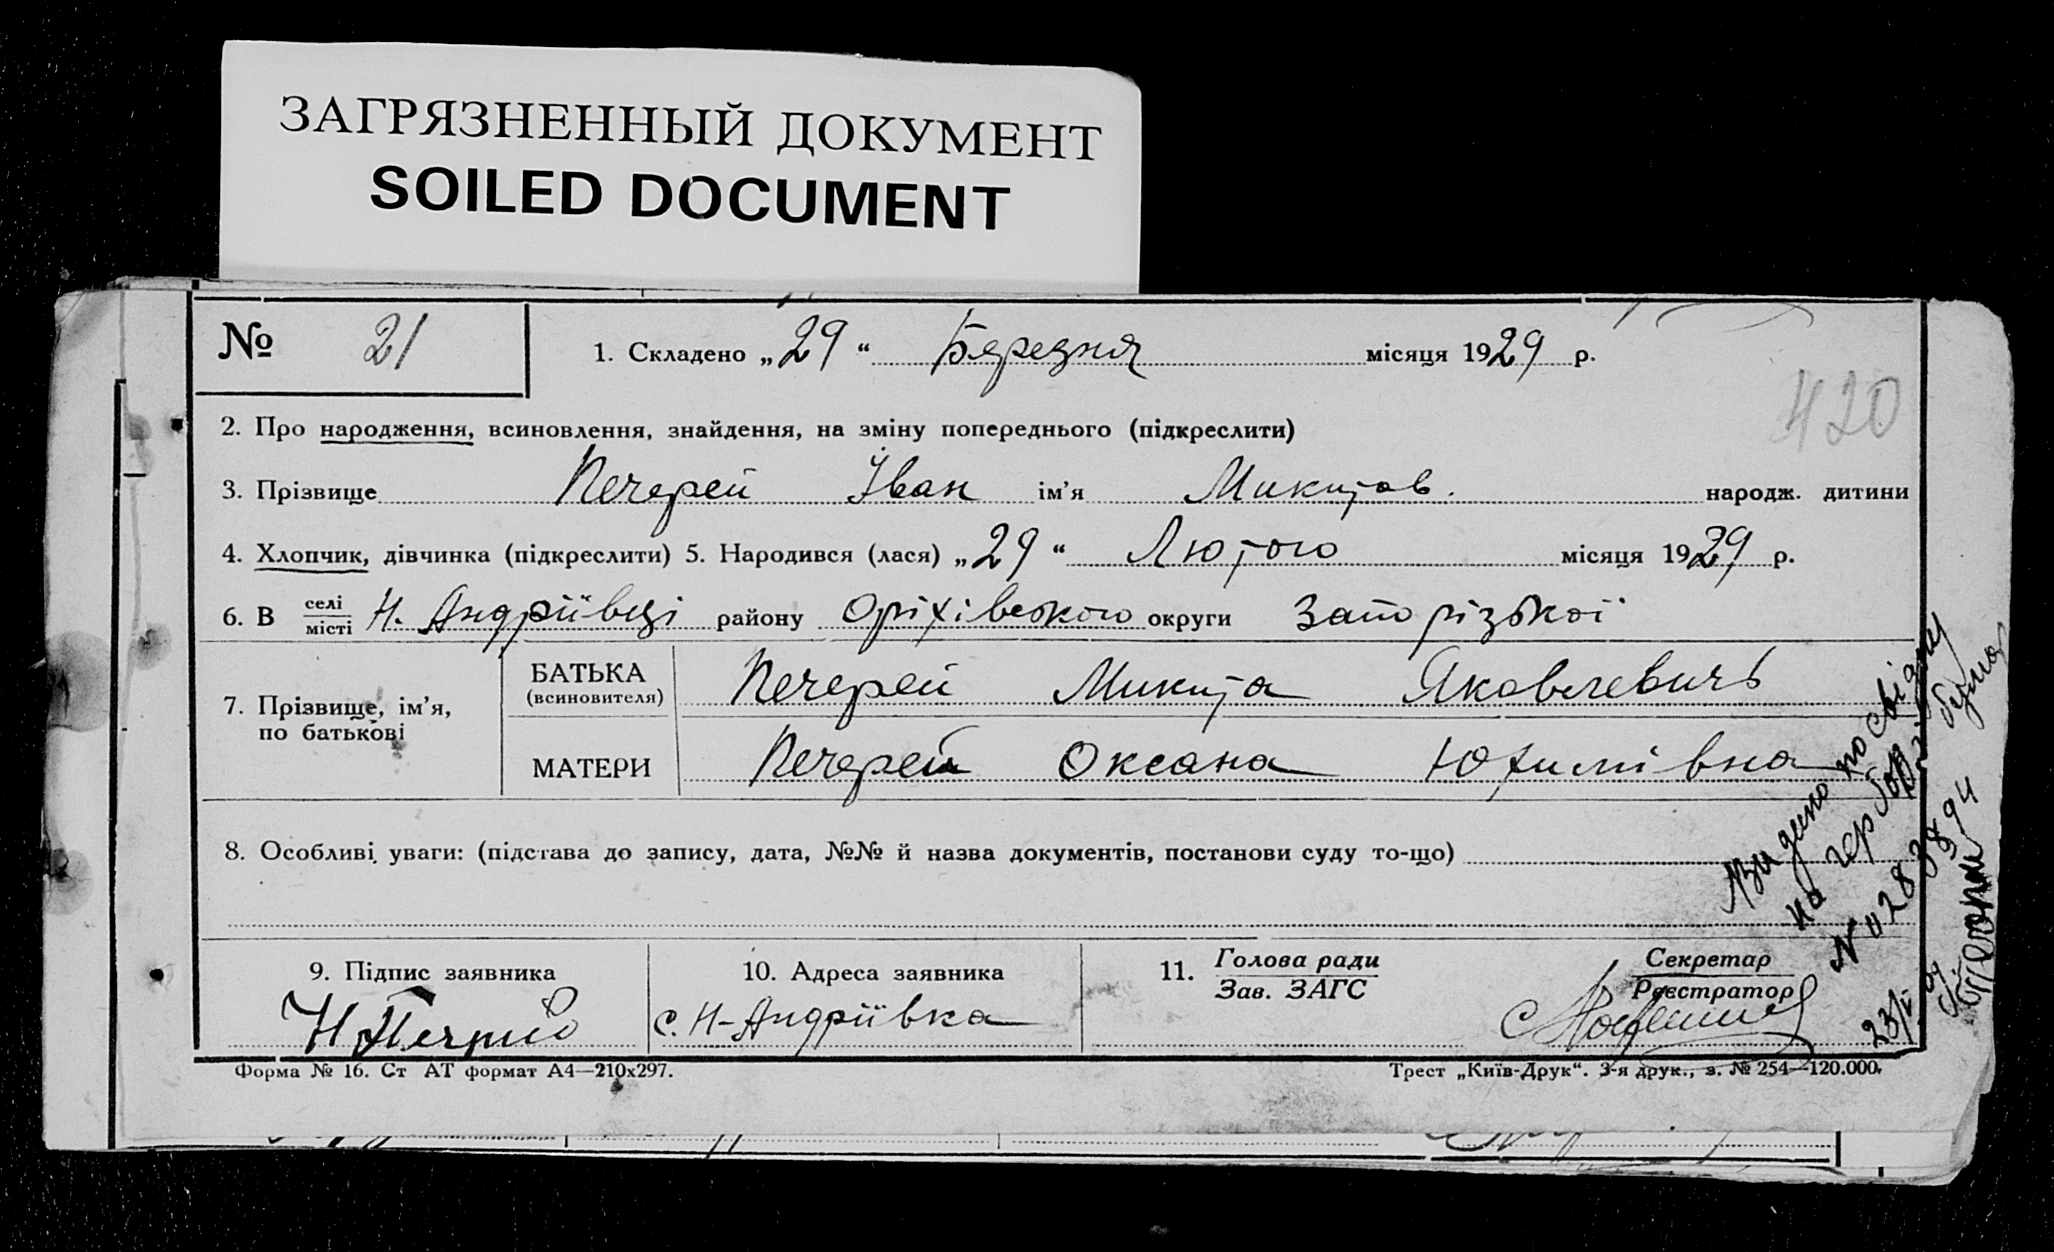 ЗАГРЯЗНЕННЫЙ ДОКУМЕНТ
SOILED DOCUMENT
№ 21
1. Складено „29“ Березня місяця 1929 р.
420
2. Про народження, всиновлення, знайдення, на зміну попереднього (підкреслити)
3. Прізвище Печерей Іван ім'я Микитов. народж. дитини
4. Хлопчик, дівчинка (підкреслити) 5. Народився (лася) „29“ Лютого місяця 1929 р.
6. В селі місті Н. Андріївці району Оріхівського округи Запорізької
7. Прізвище, ім'я, по батькові
БАТЬКА (всиновителя) Печерей Микита Яковлевичь
МАТЕРИ Печерей Оксана Юхимівна
8. Особливі уваги: (підстава до запису, дата, №№ й назва документів, постанови суду то-що)
Видано
на
9. Підпис заявника
10. Адреса заявника
с. Н-Андріївка
11. Голова ради
Зав. ЗАГС
Секретар
Реєстратор
Форма № 16. Ст АТ формат А4—210х297.
Трест „Київ-Друк“. 3-я друк., з. № 254—120.000.